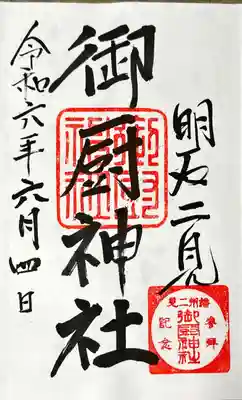 明石二見
御厨神社
令和六年六月四日
御厨神社
播州二見
参拝
御厨神社
記念